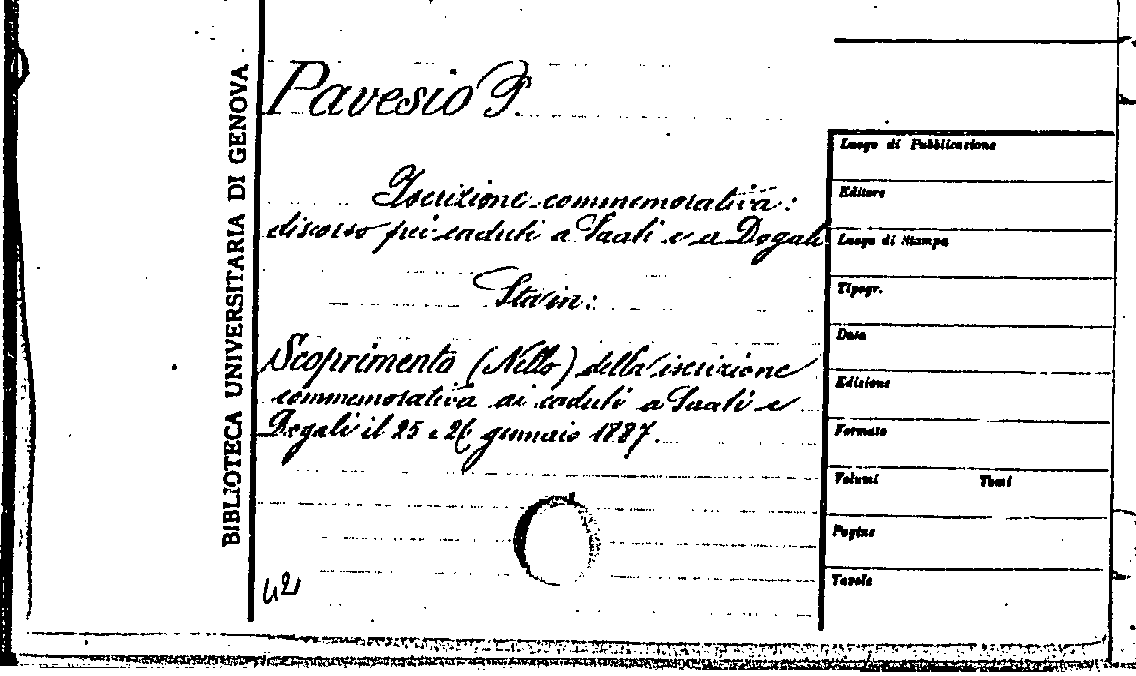 BIBLIOTECA UNIVERSITARIA DI GENOVA
Pavesio P.
Iscrizione commemorativa:
discorso pei caduti a Saati e a Dogali
Sta in:
Scoprimento (Nello) della iscrizione
commemorativa ai caduti a Saati e
Dogali il 25 e 26 gennaio 1887.
42
Luogo di Pubblicazione
Editore
Luogo di Stampa
Tipogr.
Data
Edizione
Formato
Volumi Tomi
Pagine
Tavole